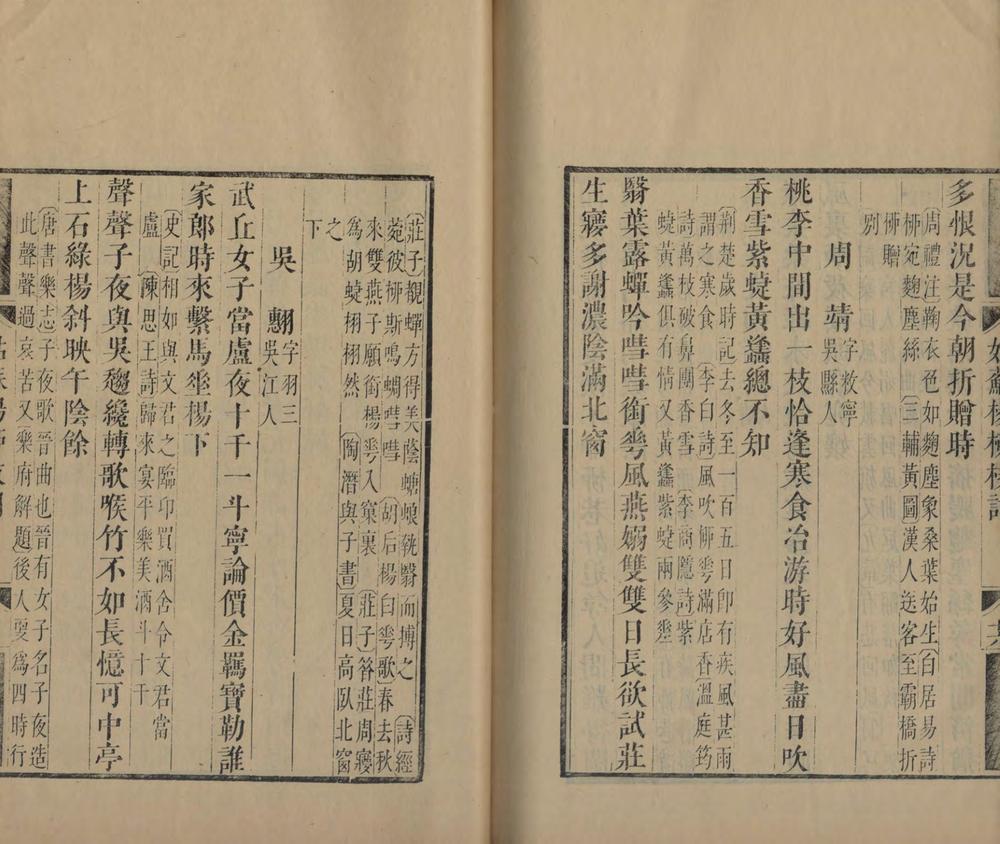 多恨況是今朝折贈時
周禮注鞠衣色如麴塵象桑葉始生白居易詩
栁宛麴塵絲三輔黃圖漢人送客至霸橋折
栁贈
別
周靖字敉寧吳縣人
桃李中間出一枝恰逢寒食冶游時好風盡日吹
香雪紫蜨黃蠭總不知
荆楚歲時記去冬至一百五日卽有疾風甚雨
謂之寒食李白詩風吹栁蕐滿店香溫庭筠
詩萬枝破鼻團香雪李商隱詩紫
蜨黃蠭俱有情又黃蠭紫蜨兩參差
翳葉露蟬吟嘒嘒銜蕐風燕嫋雙雙日長欲試莊
生㝱多謝濃陰滿北窗
莊子覩蟬方得美蔭螗蜋執翳而搏之詩經
菀彼栁斯鳴蜩嘒嘒胡后楊白蕐歌春去秋
來雙燕子願銜楊蕐入窠裏莊子昝莊周㝱
爲胡蜨栩栩然陶潛與子書夏日高臥北窗
之
下
吳翾字羽三吳江人
武丘女子當盧夜十千一斗寧論價金羈寶勒誰
家郞時來繫馬垂楊下
史記相如與文君之臨邛買酒舍令文君當
盧陳思王詩歸來宴平樂美酒斗十千
聲聲子夜與吳趨纔轉歌喉竹不如長憶可中亭
上石綠楊斜映午陰餘
唐書樂志子夜歌晉曲也晉有女子名子夜造
此聲聲過哀苦又樂府解題後人更爲四時行